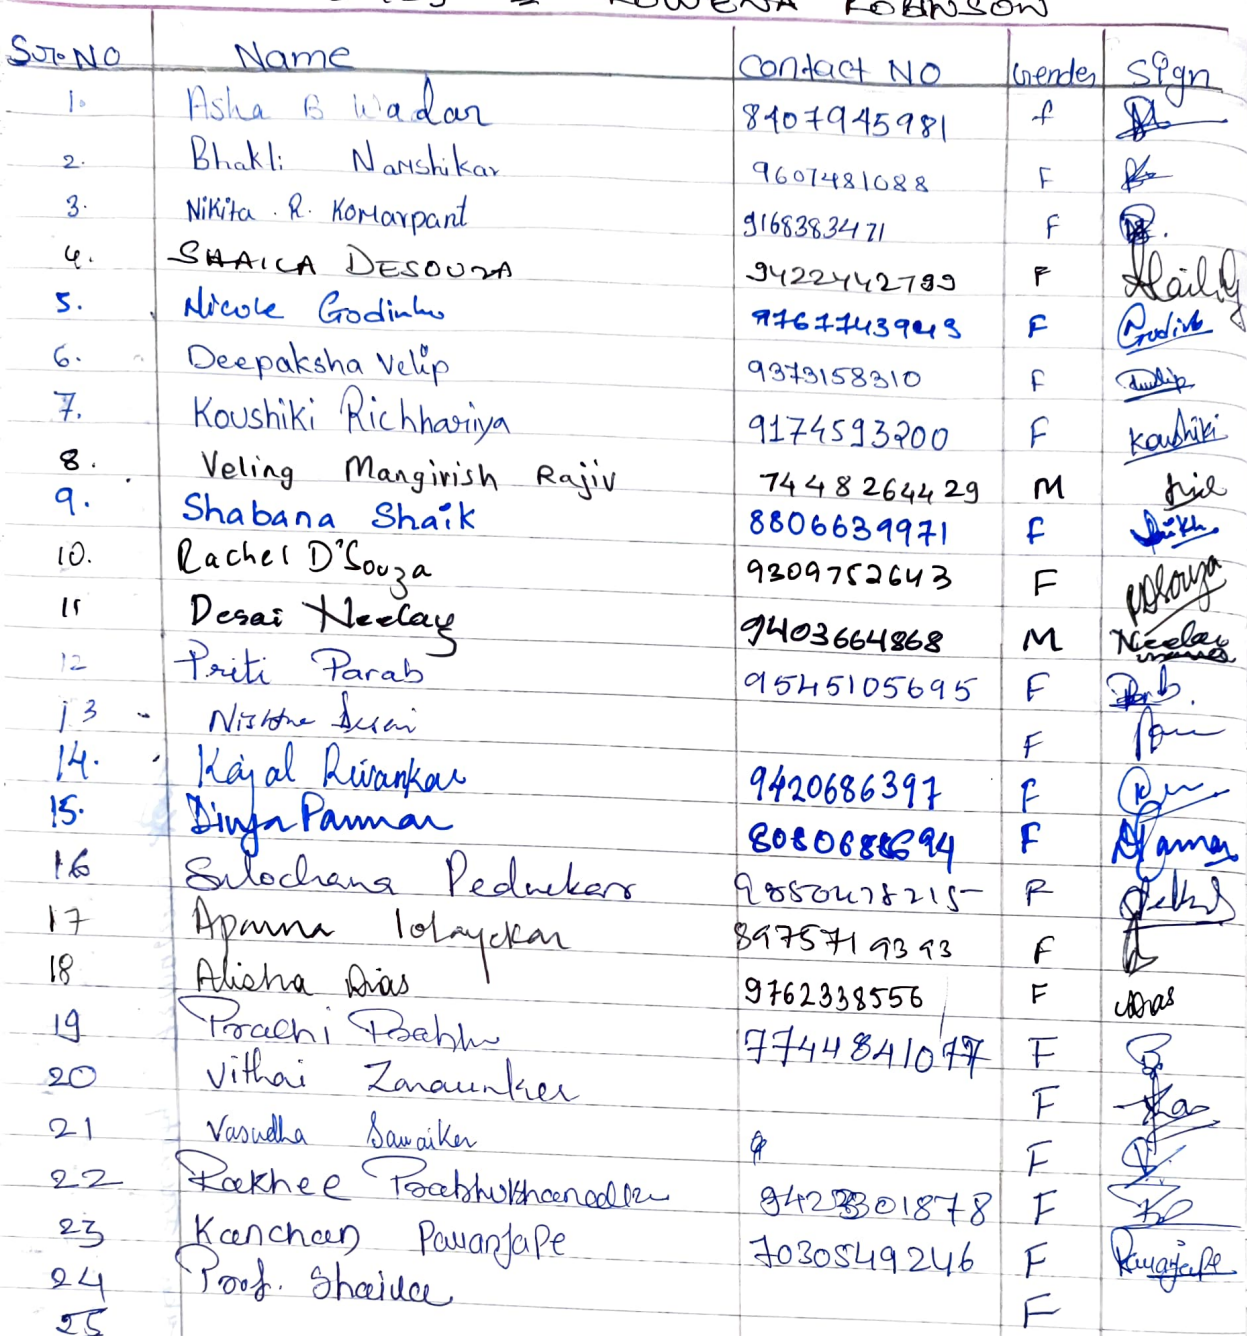 ROWENA ROBINSON
Sr. No Name Contact NO Gender Sign
1. Asha B Wadar 8407945981 f
2. Bhakti Narshikar 9607481088 F
3. Nikita . R. Komarpant 9168383471 F
4. SHAILA DESOUZA 9422442799 F
5. Nicole Godinho 9767743943 F Godinho
6. Deepaksha Velip 9373158310 F
7. Koushiki Richhariya 9174593200 F Koushiki
8. Veling Mangirish Rajiv 7448264429 M
9. Shabana Shaik 8806639971 F Shaikh
10. Rachel D'Souza 9309752643 F RDSouza
11 Desai Neelay 9403664868 M Neelay
12 Priti Parab 9545105695 F
13 Nishtha Desai F
14. Kajal Rivankar 9420686397 F
15. Divya Parmar 8080688694 F DParmar
16 Sulochana Pednekar 9850478215 F
17 Aparna lolayekar 8975719393 F
18 Alisha Dias 9762338556 F Dias
19 Prachi Prabhu 7744841077 F
20 Vithai Zaraunker F
21 Vasudha Sawaiker F
22 Rakhee Prabhukhanolkar 9423301878 F
23 Kanchan Paranjape 7030549246 F Paranjape
24 Prof. Shaila F
25